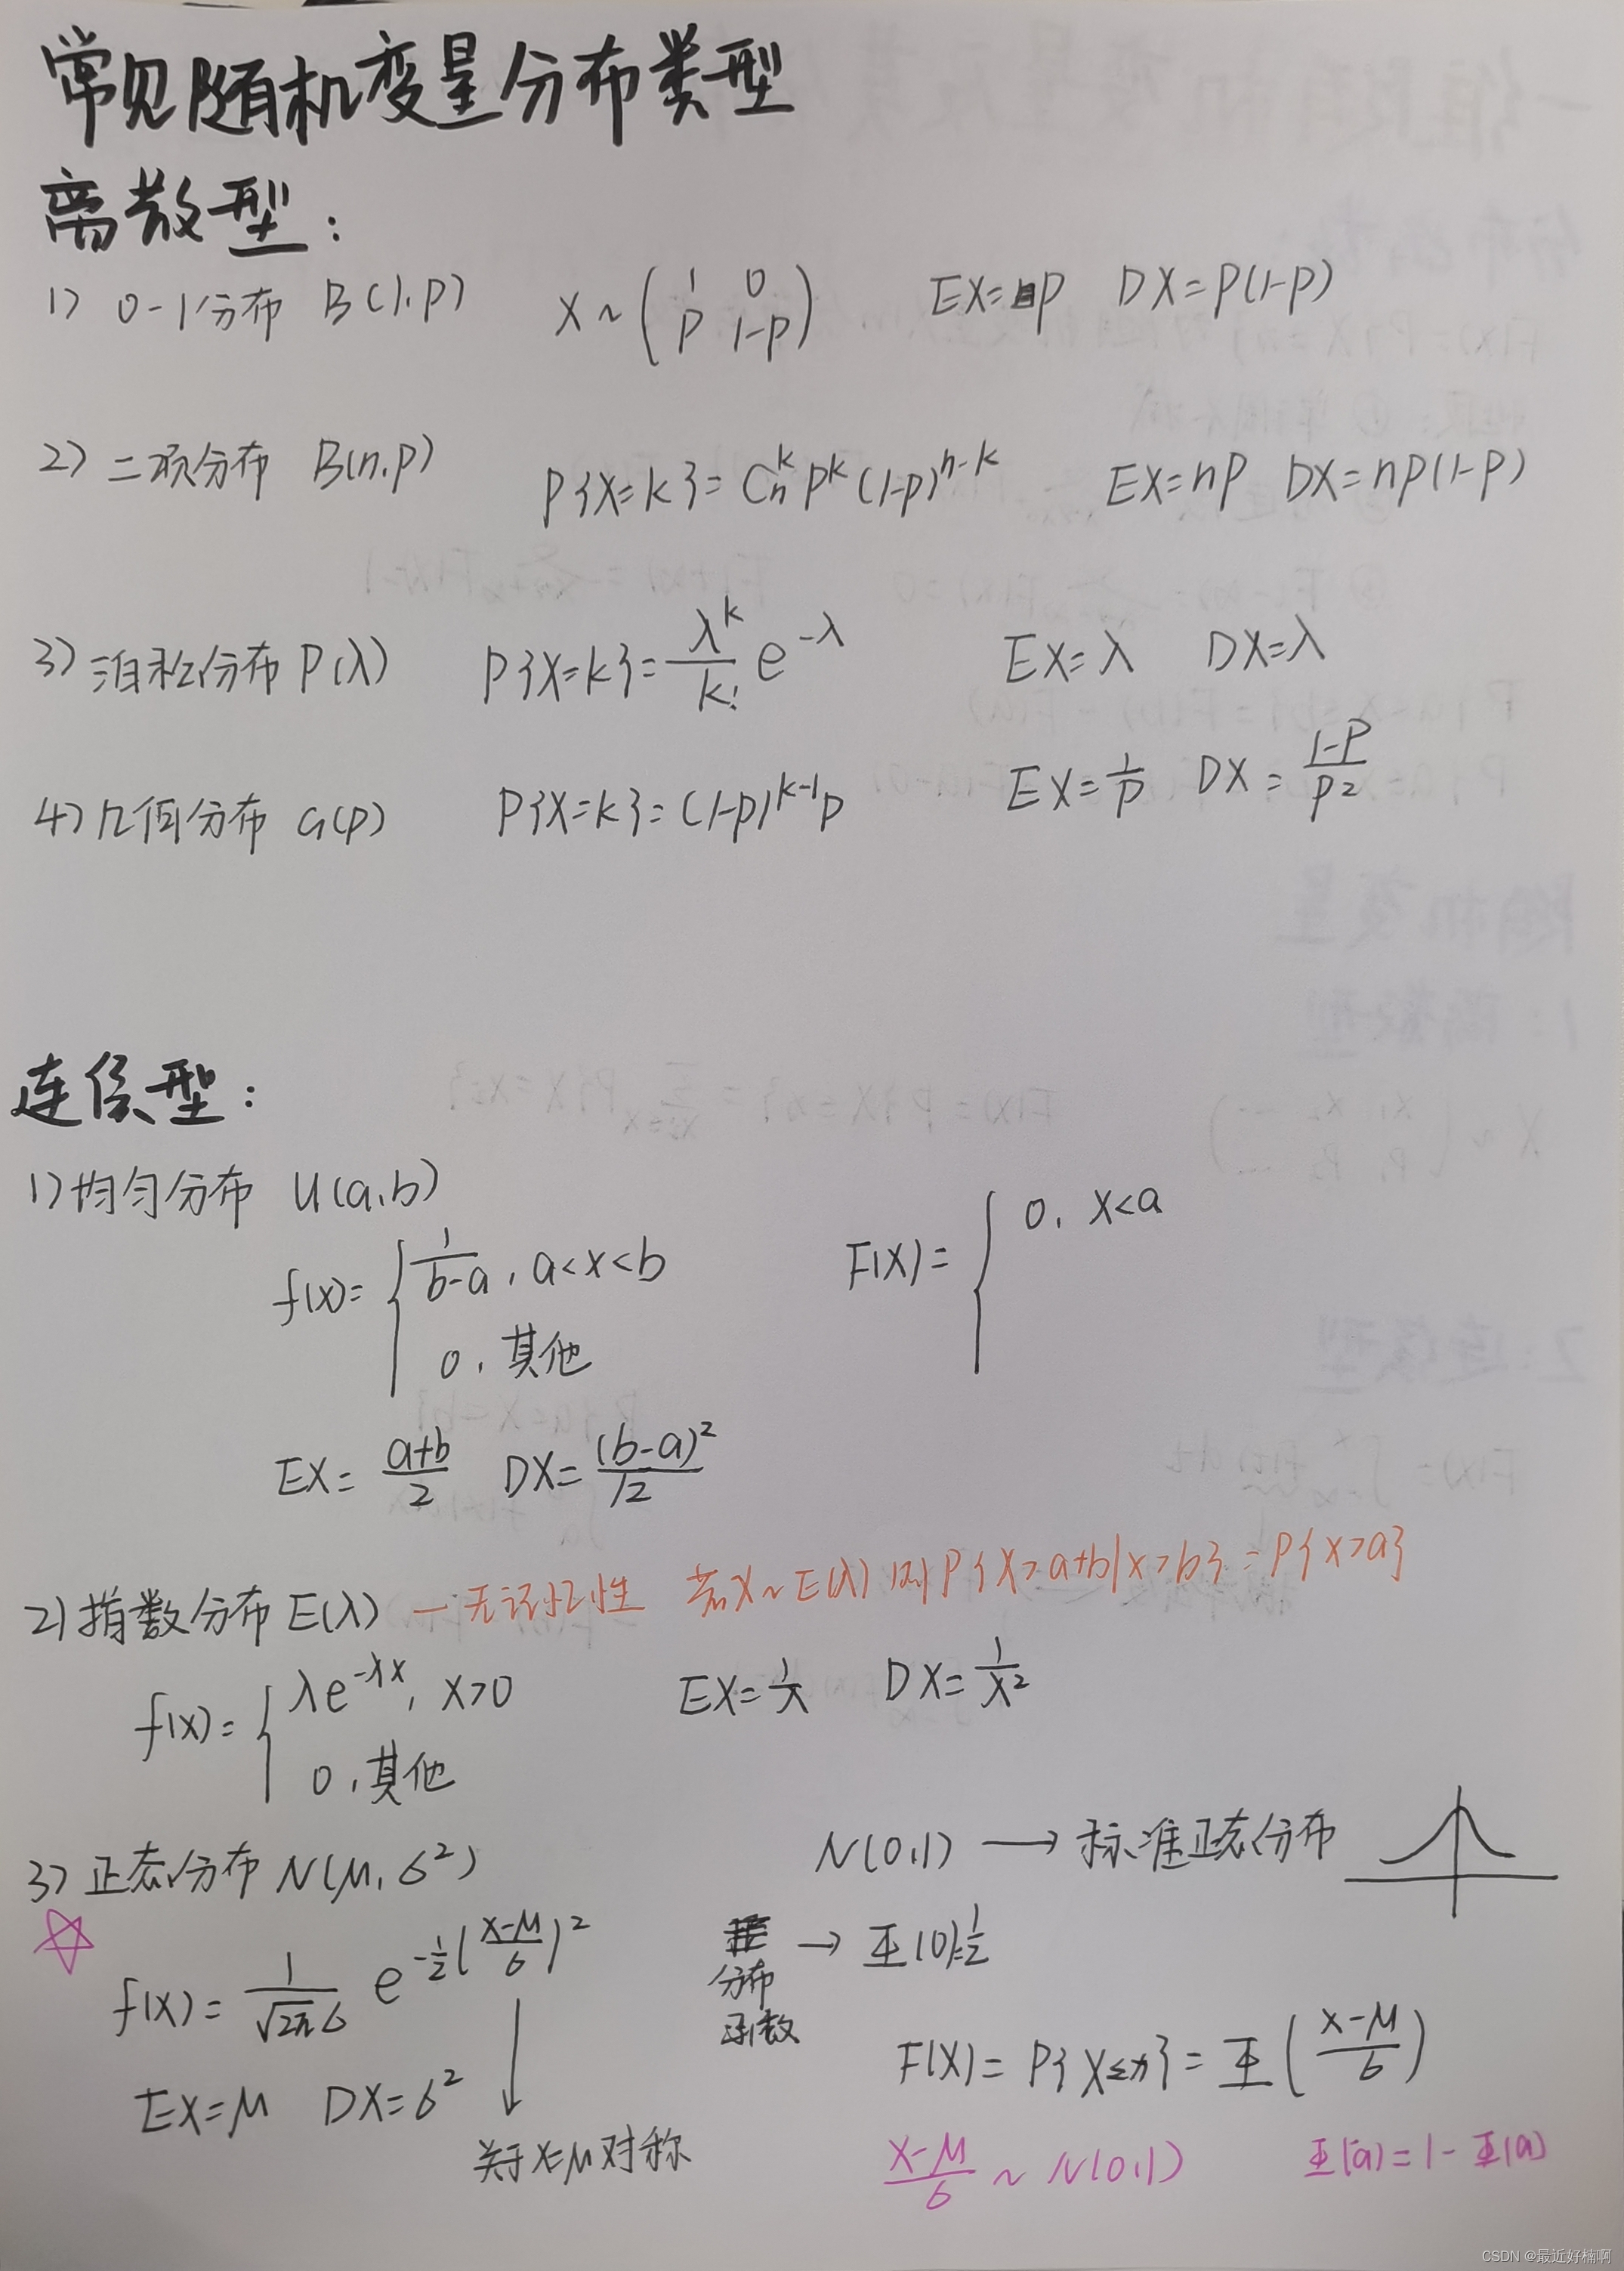 常见随机变量分布类型
离散型：
1) 0-1分布 B(1,p) X~(1 0 / p 1-p) EX=p DX=p(1-p)
2) 二项分布 B(n,p) P{X=k}=C_n^k p^k (1-p)^{n-k} EX=np DX=np(1-p)
3) 泊松分布 P(λ) P{X=k}=λ^k/k! e^{-λ} EX=λ DX=λ
4) 几何分布 G(p) P{X=k}=(1-p)^{k-1}p EX=1/p DX=(1-p)/p²
连续型：
1) 均匀分布 U(a,b)
f(x)={ 1/(b-a), a<x<b F(x)={ 0, x<a
0, 其他
EX=(a+b)/2 DX=(b-a)²/12
2) 指数分布 E(λ) —无记忆性 若X~E(λ) 则P{X>a+b|x>b}=P{x>a}
f(x)={ λe^{-λx}, x>0 EX=1/λ DX=1/λ²
0, 其他
3) 正态分布 N(μ,σ²) N(0,1) → 标准正态分布
f(x)=1/(√2π σ) e^{-1/2((x-μ)/σ)²} 分布函数 → Φ(0)=1/2
F(x)=P{X≤x}=Φ((x-μ)/σ)
EX=μ DX=σ²
关于x=μ对称 (x-μ)/σ ~ N(0,1) Φ(-a)=1-Φ(a)
CSDN @最近好楠啊